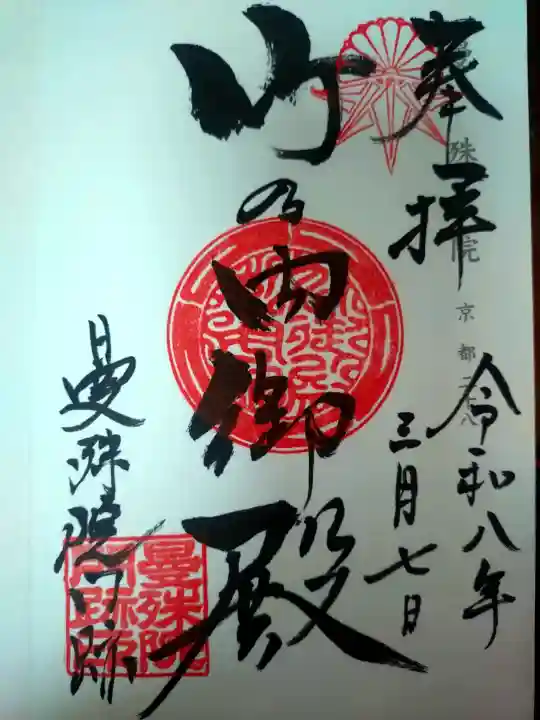 奉拝
令和八年
三月七日
山乃内御殿
曼殊院門跡
曼殊院
門跡
殊
院
京都